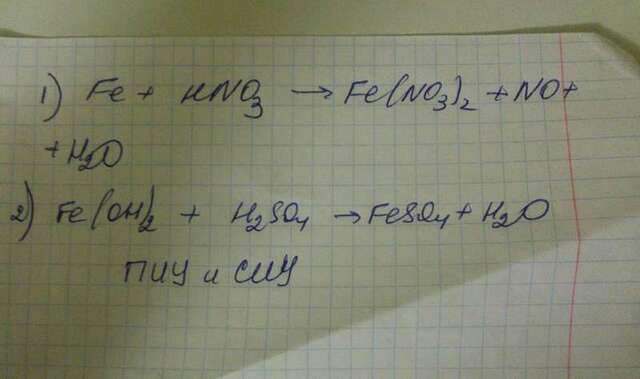 1) Fe + HNO3 → Fe(NO3)2 + NO +
+ H2O
2) Fe(OH)2 + H2SO4 → FeSO4 + H2O
ПИУ и СИУ